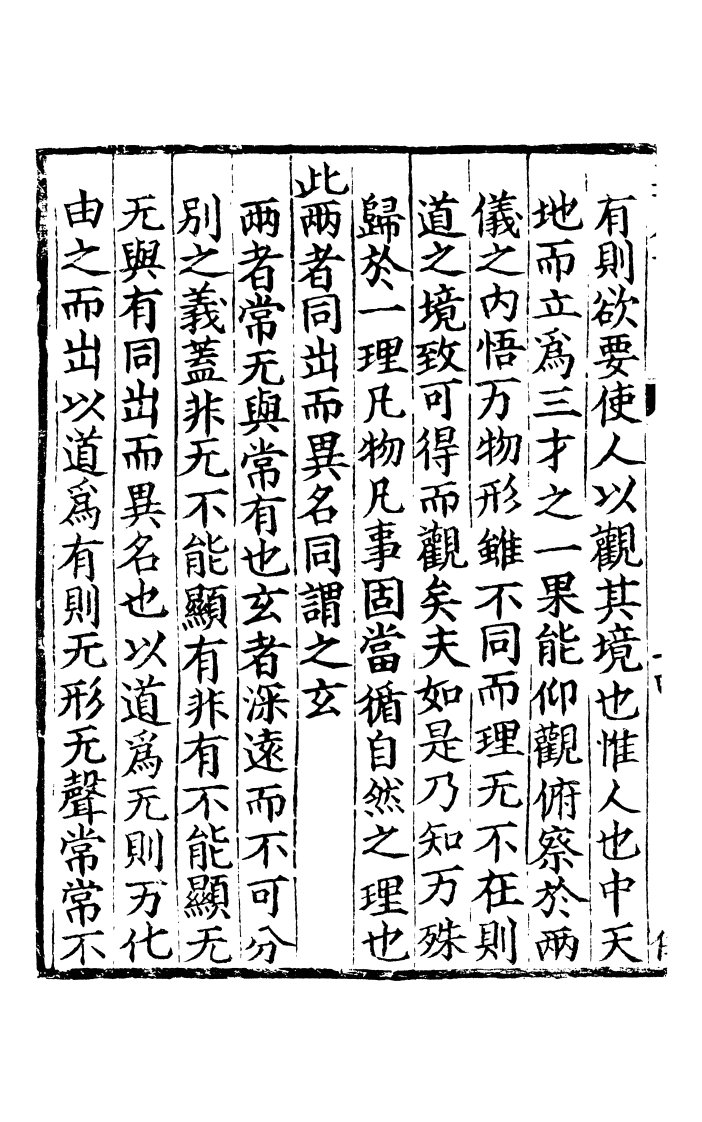 有則欲要使人以觀其境也惟人也中天
地而立爲三才之一果能仰觀俯察於兩
儀之内悟万物形雖不同而理无不在則
道之境致可得而觀矣夫如是乃知万殊
歸於一理凡物凡事固當循自然之理也
此兩者同出而異名同謂之玄
兩者常无與常有也玄者深遠而不可分
別之義蓋非无不能顯有非有不能顯无
无與有同出而異名也以道爲无則万化
由之而出以道爲有則无形无聲常常不